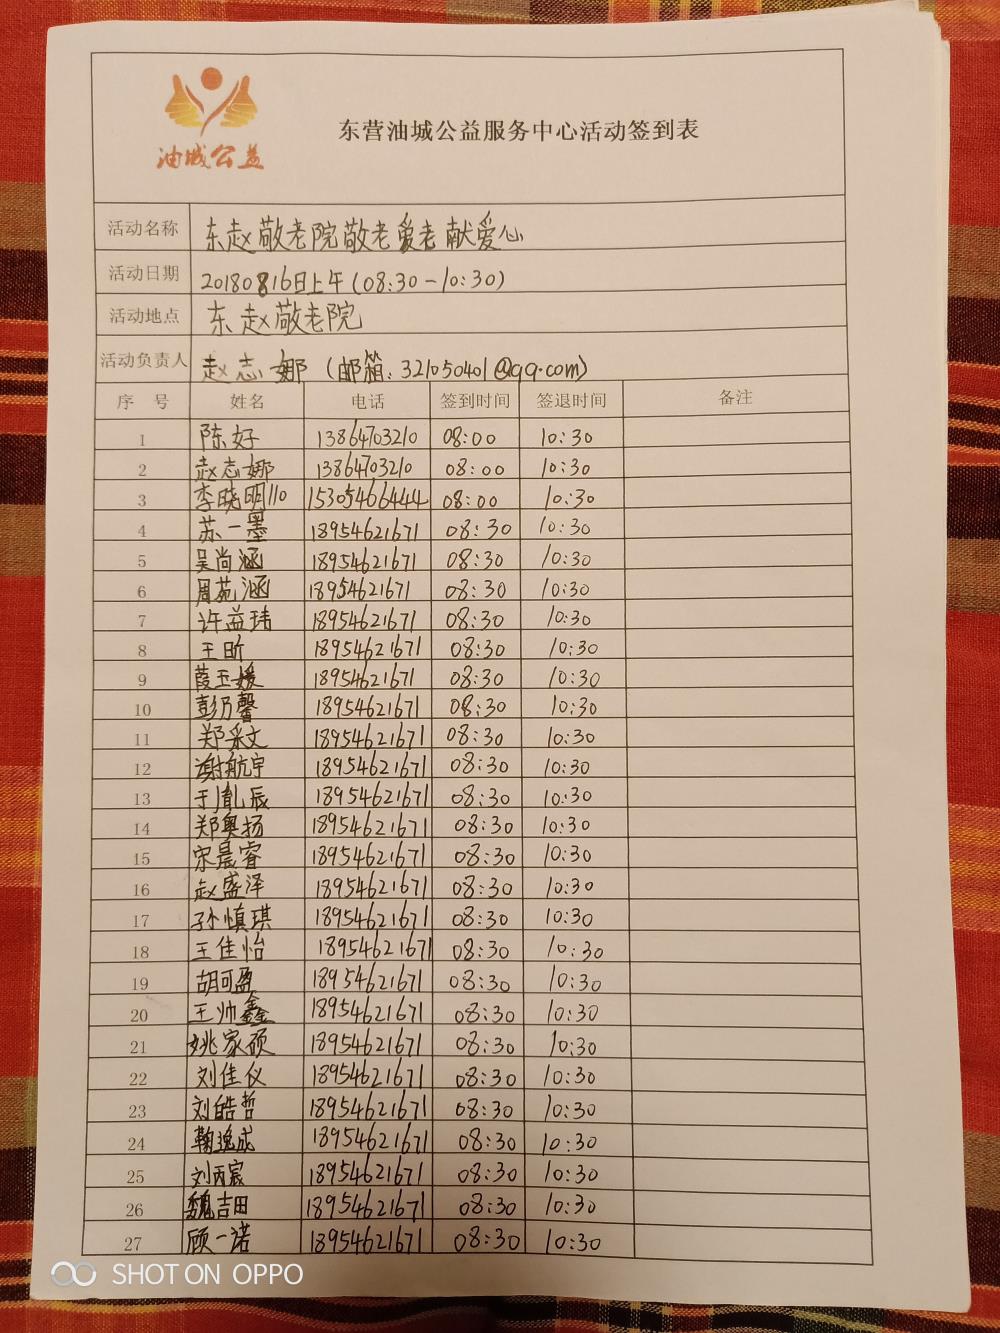 油城公益
东营油城公益服务中心活动签到表
活动名称 东赵敬老院敬老爱老献爱心
活动日期 20180816日上午(08:30-10:30)
活动地点 东赵敬老院
活动负责人 赵志娜(邮箱:321050401@qq.com)
序 号 姓名 电话 签到时间 签退时间 备注
1 陈好 13864703210 08:00 10:30
2 赵志娜 13864703210 08:00 10:30
3 李晓明110 15305466444 08:00 10:30
4 苏一墨 18954621671 08:30 10:30
5 吴尚涵 18954621671 08:30 10:30
6 周苑涵 18954621671 08:30 10:30
7 许益玮 18954621671 08:30 10:30
8 王昕 18954621671 08:30 10:30
9 葭玉媛 18954621671 08:30 10:30
10 彭乃馨 18954621671 08:30 10:30
11 郑采文 18954621671 08:30 10:30
12 谢航宇 18954621671 08:30 10:30
13 于胤辰 18954621671 08:30 10:30
14 郑奥扬 18954621671 08:30 10:30
15 宋晨睿 18954621671 08:30 10:30
16 赵盛泽 18954621671 08:30 10:30
17 孙慎琪 18954621671 08:30 10:30
18 王佳怡 18954621671 08:30 10:30
19 胡可盈 18954621671 08:30 10:30
20 王帅鑫 18954621671 08:30 10:30
21 姚家硕 18954621671 08:30 10:30
22 刘佳仪 18954621671 08:30 10:30
23 刘皓哲 18954621671 08:30 10:30
24 鞠逸成 18954621671 08:30 10:30
25 刘丙宸 18954621671 08:30 10:30
26 魏吉田 18954621671 08:30 10:30
27 顾一诺 18954621671 08:30 10:30
SHOT ON OPPO